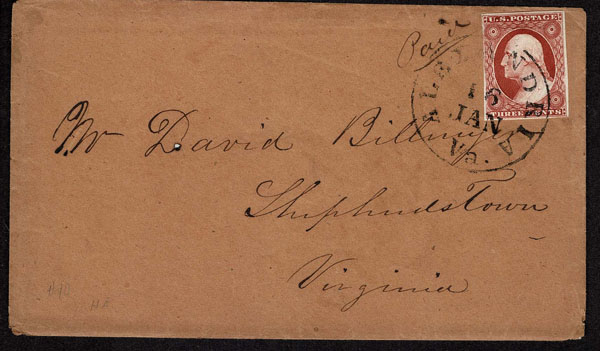 Paid
U.S. POSTAGE
THREE CENTS
ALEXANDRIA
16
JAN
VA.
Mr David Billmyer
Shepherdstown
Virginia